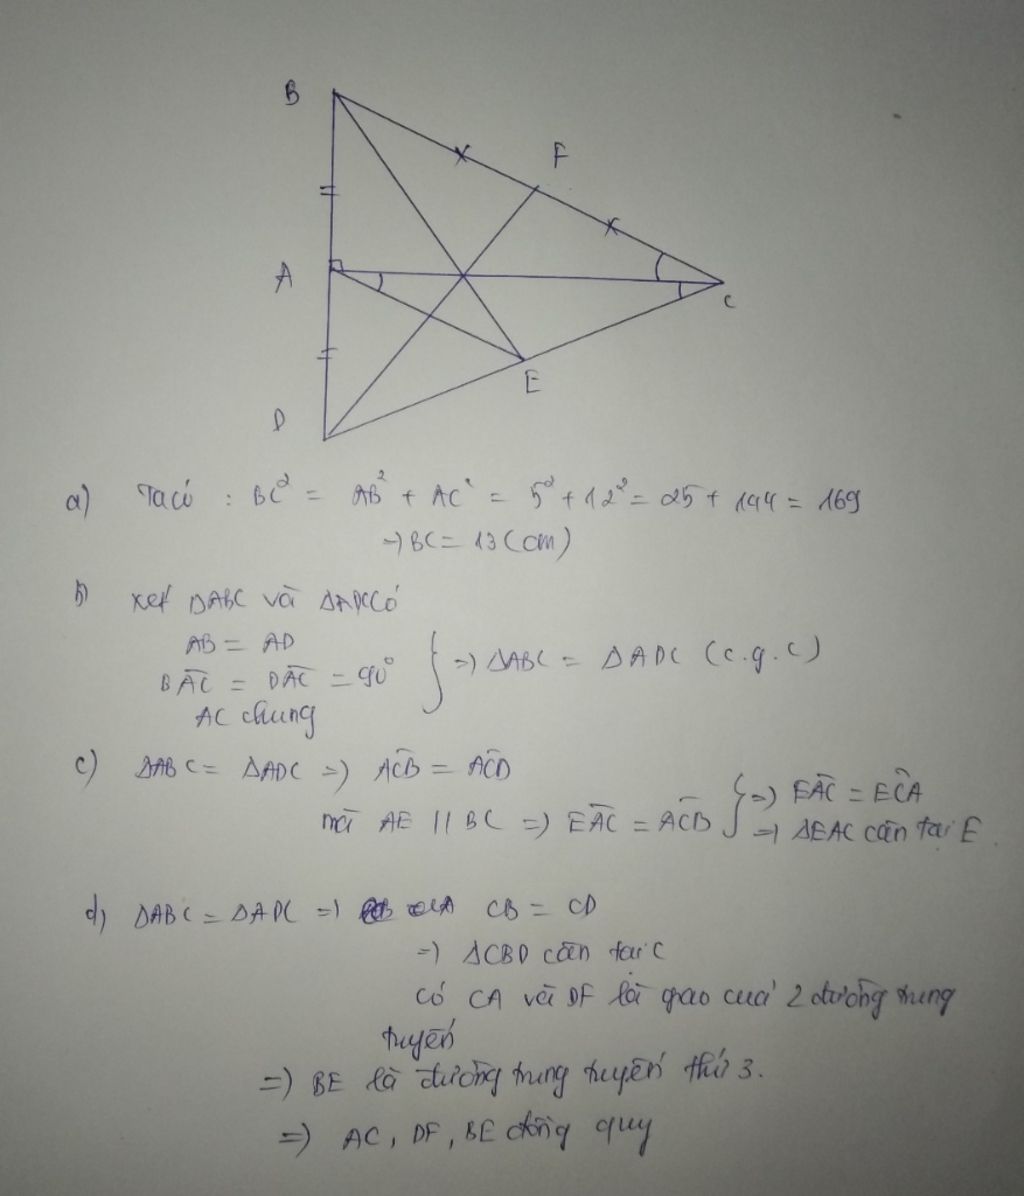 B
F
A
C
E
D
a) Ta có : BC² = AB² + AC² = 5² + 12² = 25 + 144 = 169
=) BC = 13 (cm)
b) xét ΔABC và ΔADC có
AB = AD
BAC = DAC = 90° } =) ΔABC = ΔADC (c.g.c)
AC chung
c) ΔABC = ΔADC =) ACB = ACD
=) EAC = ECA
mà AE // BC =) EAC = ACB } =) ΔEAC cân tại E.
d) ΔABC = ΔADC =) CB = CD
=) ΔCBD cân tại C
có CA và DF là giao của 2 đường trung
tuyến
=) BE là đường trung tuyến thứ 3.
=) AC, DF, BE đồng quy